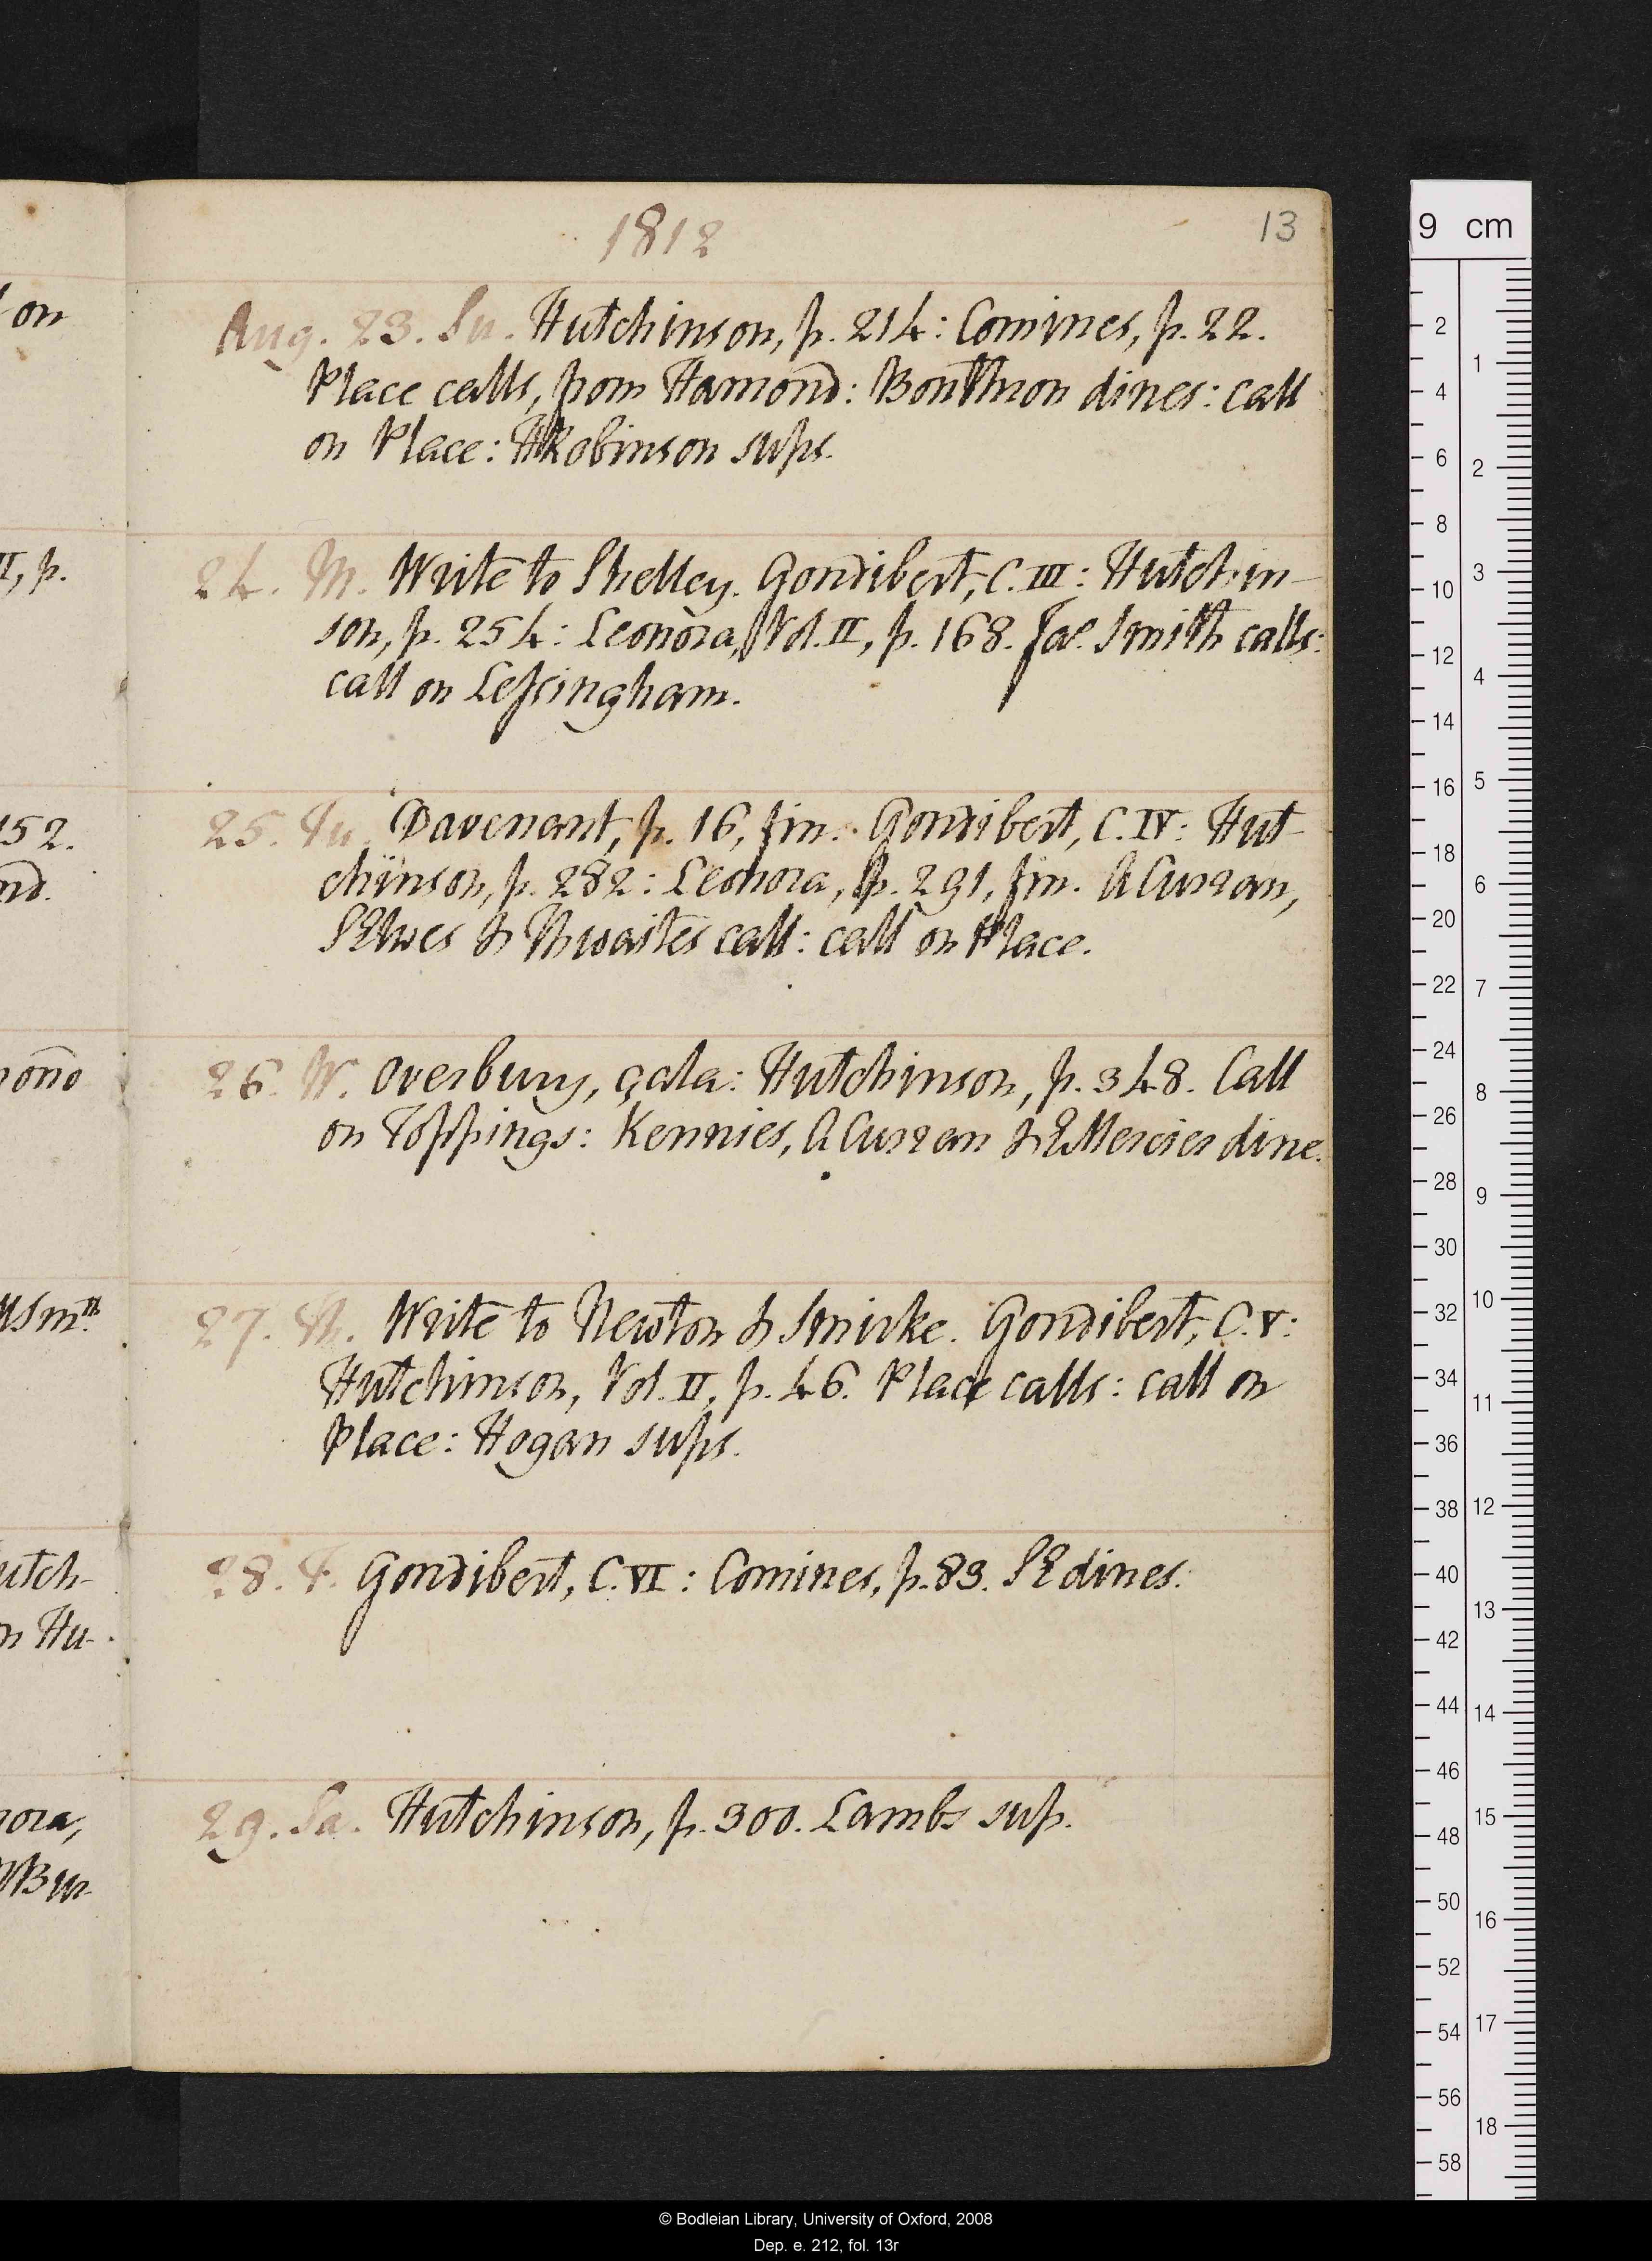 1812
13
Aug. 23. Su. Hutchinson, p. 214: Comines, p. 22.
Place calls, from Hamond: Bonthron dines: call
on Place: HRobinson sups.
24. M. Write to Shelley. Gondibert, C. III: Hutchin-
son, p. 254: Leonora, Vol. II, p. 168. Jas. Smith calls:
call on Lessingham.
25. Tu. Davenant, p. 16, fin. Gondibert, C. IV: Hut-
chinson, p. 282: Leonora, p. 291, fin. ACurran,
SElwes & Thwaites call: call on Place.
26. W. Overbury, çala: Hutchinson, p. 348. Call
on Toppings: Kennies, ACurran & Mercier dine.
27. Th. Write to Newton & Smirke. Gondibert, C. V:
Hutchinson, Vol. II, p. 46. Place calls: call on
Place: Hogan sups.
28. F. Gondibert, C. VI: Comines, p. 83. SE dines.
29. Sa. Hutchinson, p. 300. Lambs sup.
on
II, p.
152.
nd.
utch-
n Hu-
nora,
9 cm
© Bodleian Library, University of Oxford, 2008
Dep. e. 212, fol. 13r